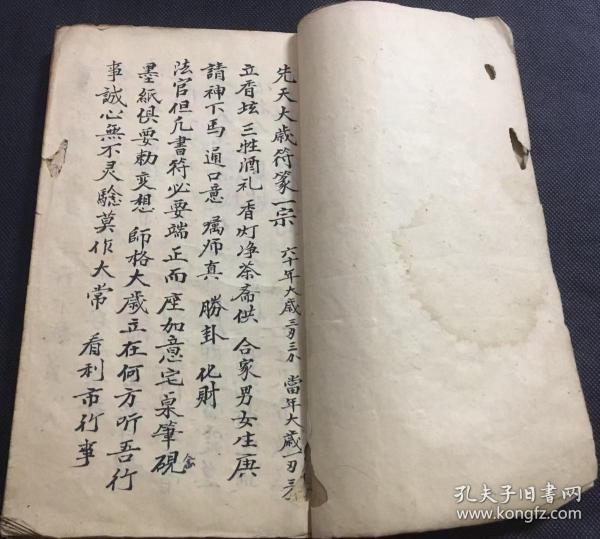 先天大歲符篆一宗 六十年大歲 當年大歲
立香坛三牲酒礼香灯净茶斋供合家男女生庚
請神下馬通口意 師真 勝卦 化財
法官但凢書符必要端正而座加意宅桌筆硯
墨紙俱要勅変想師格大歲立在何方听吾行
事誠心無不灵驗莫作大常 看利市行事
孔夫子旧书网
www.kongfz.com